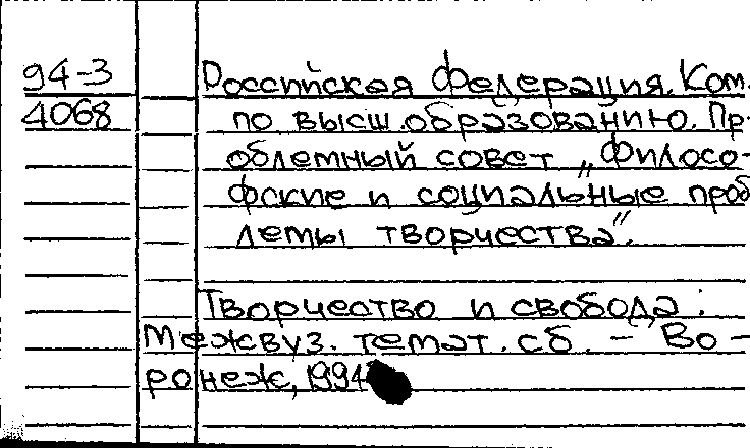 94-3 Российская Федерация. Ком.
4068 по высш. образованию. Пр-
облемный совет „Филосо-
фские и социальные проб
лемы творчества".
Творчество и свобода:
Межвуз. темат. сб. - Во-
ронеж, 1994